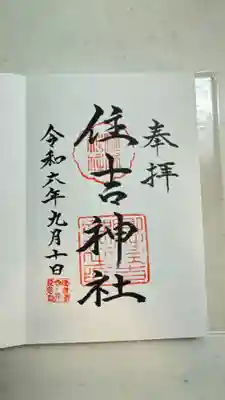 奉拝
住吉神社
令和六年九月十日